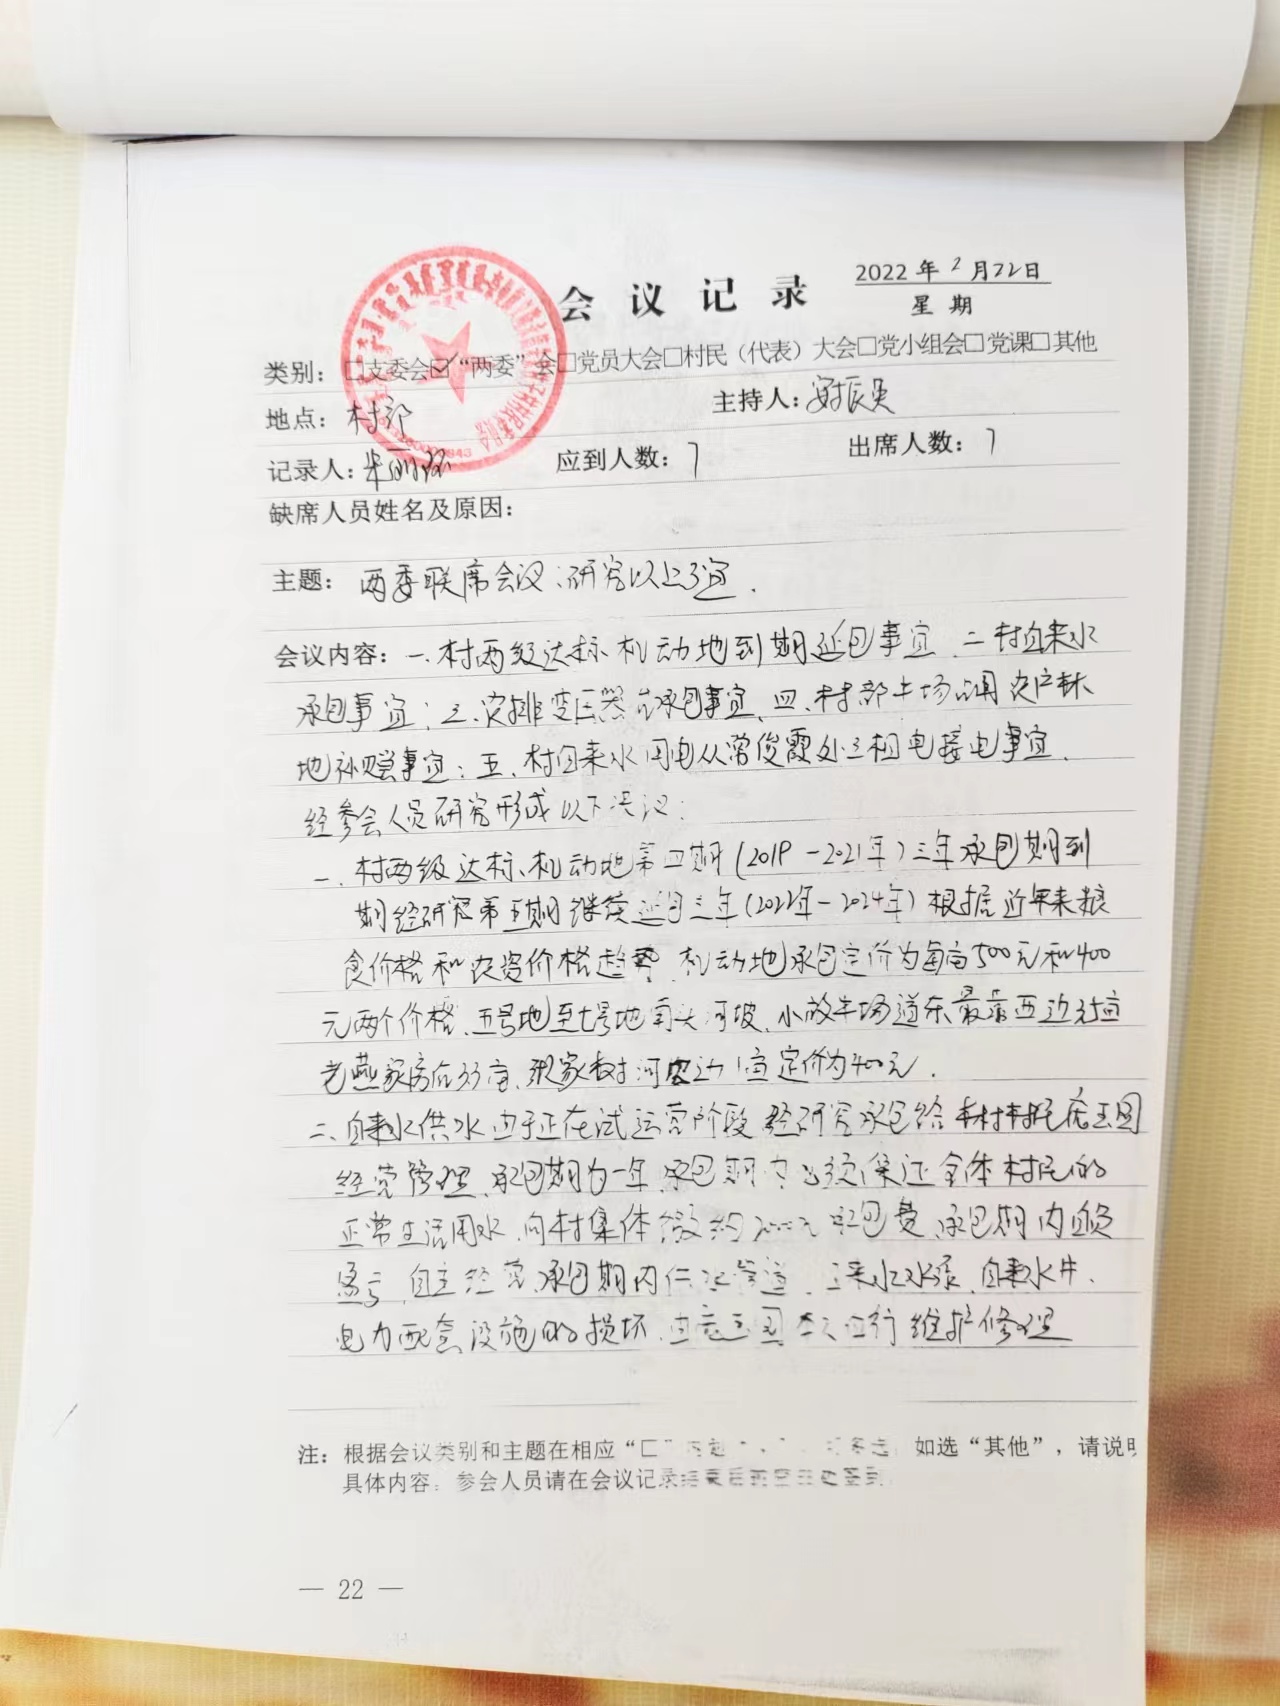 会议记录
2022年2月22日
星期
类别：□支委会☑“两委”会□党员大会□村民（代表）大会□党小组会□党课□其他
地点：村部 主持人：
记录人： 应到人数：7 出席人数：7
缺席人员姓名及原因：
主题：两委联席会议：研究以上事宜.
会议内容：一.村两级达标、机动地到期延包事宜 二 村自来水
承包事宜；三、农排变压器 承包事宜、四、村部牛场占用农户林
地补赔事宜；五、村自来水用电从常俊霞处三相电接电事宜.
经参会人员研究形成以下决议：
一、村两级达标、机动地第四期(2019-2021年)三年承包期到
期经研究第五期继续延包三年(2022年-2024年)根据近年来粮
食价格和农资价格趋势 机动地承包定价为每亩500元和400
元两个价格、五号地至七号地南头河坡、小放牛场道东最靠西边35亩
老燕家房后33亩、 家树河 边1亩定价为400元.
二、自来水供水由于正在试运营阶段 经研究承包给本村村民 玉国
经营管理、承包期为一年、承包期内必须保证全体村民的
正常生活用水、向村集体缴纳 承包费、承包期内自负
盈亏、自主经营、承包期内供水管道、 来水水泵、自来水井、
电力配套设施的损坏、由 玉国本人自行维护修理
注：根据会议类别和主题在相应“□” 如选“其他”，请说明
具体内容；参会人员请在会议记录结束后的空白处签到
— 22 —